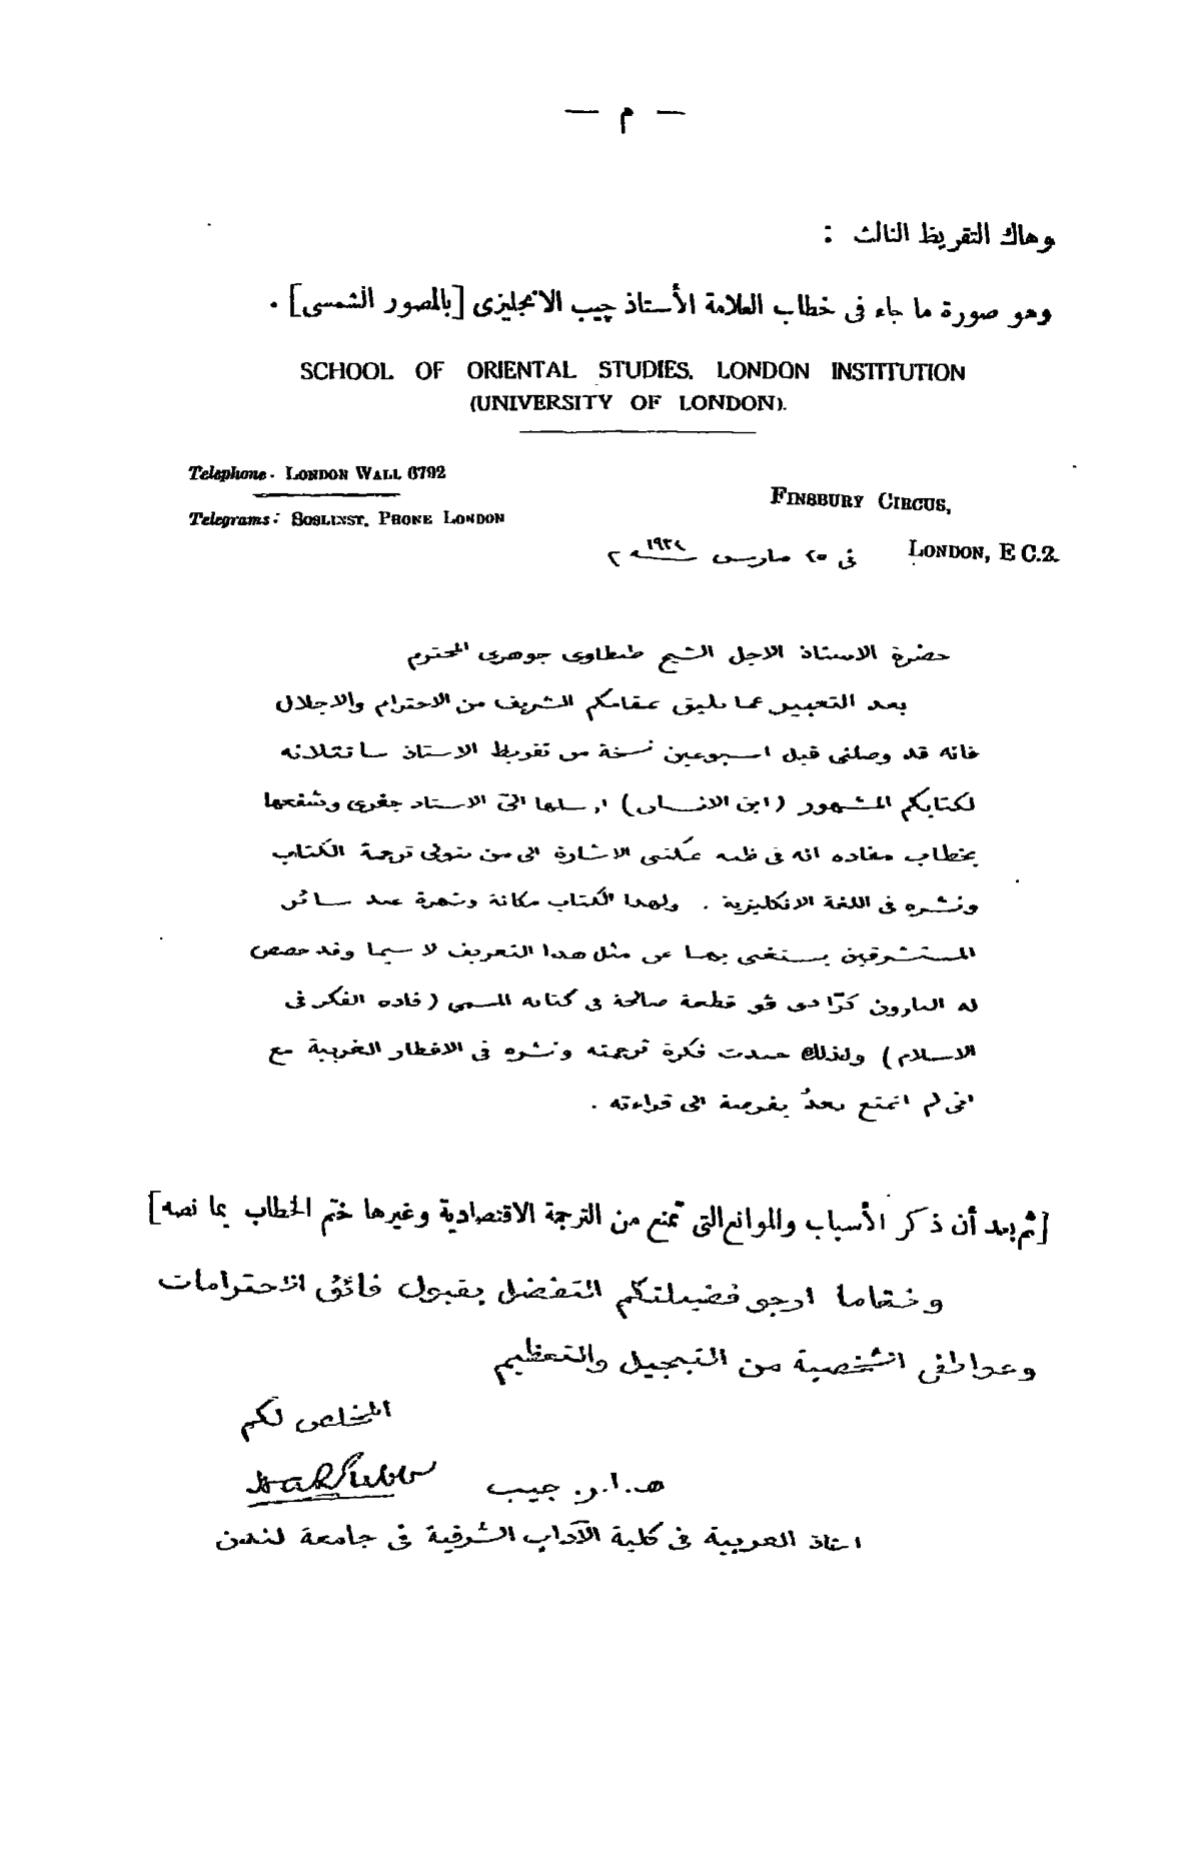 — م —
وهاك التقريظ الثالث :
وهو صورة ما جاء فى خطاب العلامة الأستاذ چيب الانجليزى [بالمصور الشمسى] .
SCHOOL OF ORIENTAL STUDIES. LONDON INSTITUTION
(UNIVERSITY OF LONDON).
Telephone. LONDON WALL 6792
FINSBURY CIRCUS,
Telegrams: SOSLINST. PHONE LONDON
LONDON, E C.2.
فى ٢٥ مارس سنة م
حضرة الاستاذ الاجل الشيخ طنطاوى جوهرى المحترم
بعد التعبير عما يليق بمقامكم الشريف من الاحترام والاجلال
فانه قد وصلنى قبل اسبوعين نسخة من تقريظ الاستاذ سانتلانه
لكتابكم المشهور (اين الانسان) ارسلها الىّ الاستاذ جفرى وشفعها
بخطاب مفاده انه فى ظنه يمكننى الاشارة الى من يتولى ترجمة الكتاب
ونشره فى اللغة الانكليزية . ولهذا الكتاب مكانة وشهرة عند سائر
المستشرقين يستغنى بهما عن مثل هذا التعريف لا سيما وقد خصص
له البارون كرّا دى ڤو قطعة صالحة فى كتابه المسمى (قادة الفكر فى
الاسلام) ولذلك حبذت فكرة ترجمته ونشره فى الاقطار الغربية مع
انى لم اتمتع بعدُ بفرصة الى قراءته .
[ثم بعد أن ذكر الأسباب والموانع التى تمنع من الترجمة الاقتصادية وغيرها ختم الخطاب بما نصه]
وختاما ارجو فضيلتكم التفضل بقبول فائق الاحترامات
وعواطفى الشخصية من التبجيل والتعظيم
المخلص لكم
ه. ا. ر. جيب H A R Gibb
استاذ العربية فى كلية الآداب الشرقية فى جامعة لندن